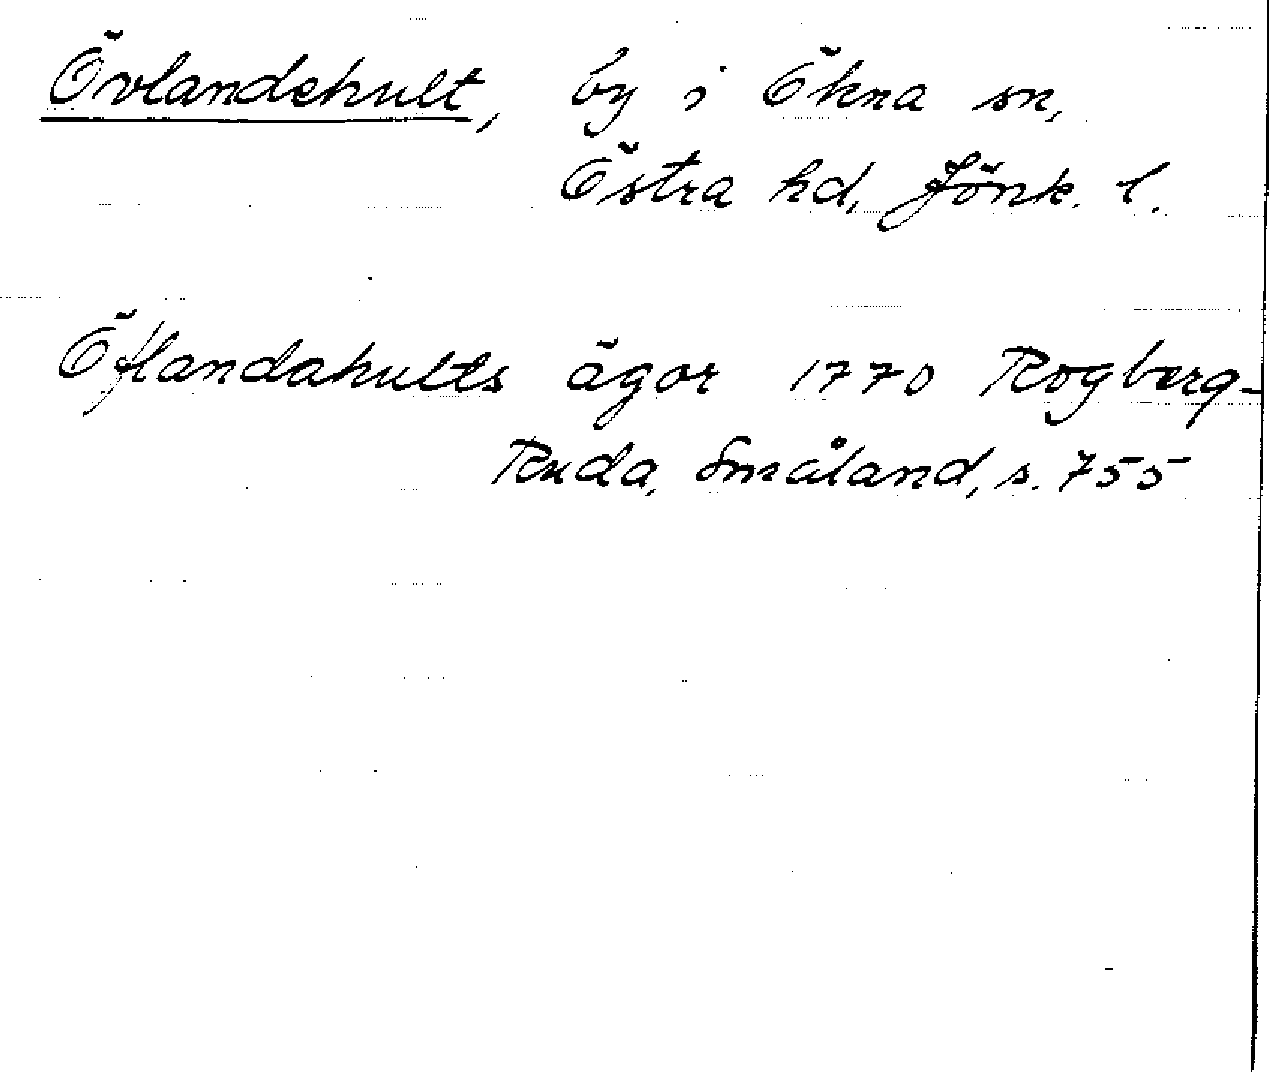 Övlandehult, by i Ökna sn,
Östra hd, Jönk. l.
Öflandahults ägor 1770 Rogberg-
Ruda, Småland, s. 755